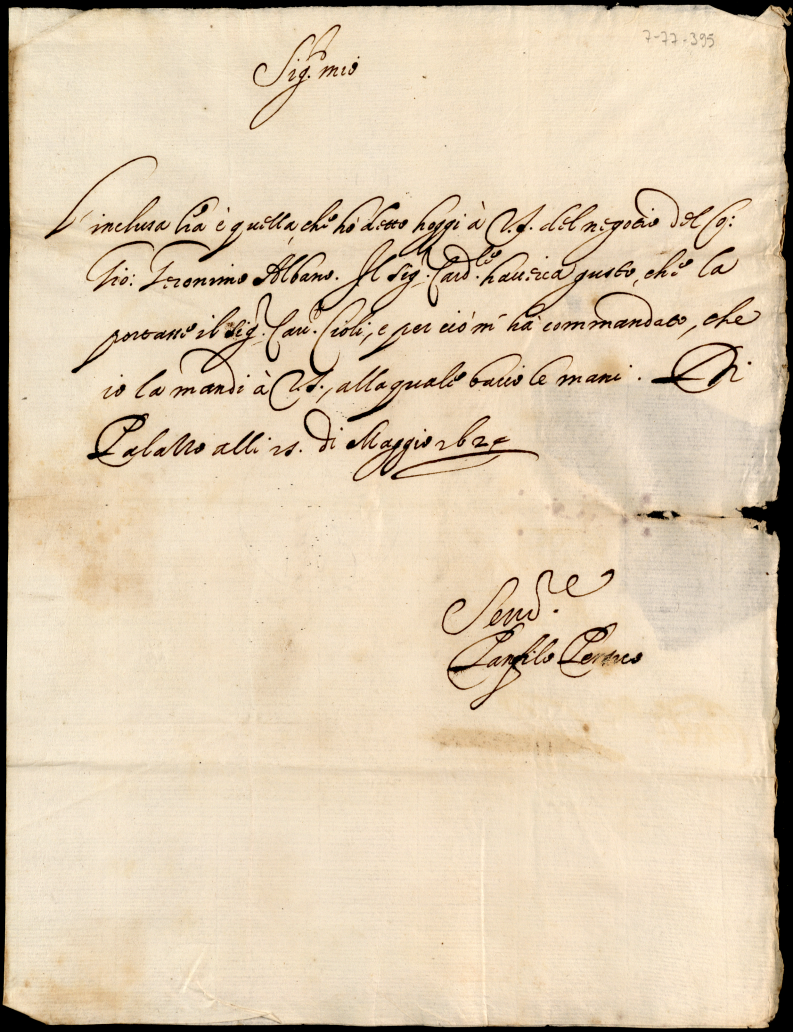 7-77-395
Sig.r mio
L'inclusa lr̃a è quella, che hò detto hoggi à V.S. del negotio del Co:
Gio: Geronimo Albano. Il Sig.r Card.le haueria gusto, che la
portasse il Sig.r Cau.r Cioli, e per ciò m'hà commandato, che
io la mandi à V.S., alla quale bacio le mani. Di
Palazzo alli 25. di Maggio 162
Seru.re
Panfilo Persico